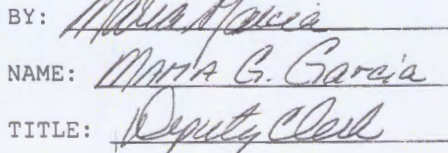 BY: Maria Garcia
NAME: Maria G. Garcia
TITLE: Deputy Clerk